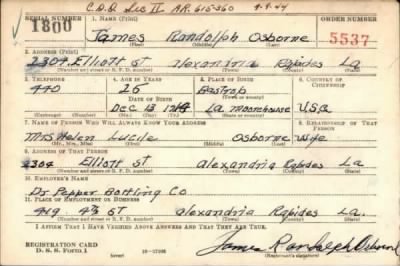 C.D.O. Sec II AR. 615-360 9-9-44
SERIAL NUMBER 1. NAME (Print) ORDER NUMBER
1800 James Randolph Osborne 5537
(First) (Middle) (Last)
2. ADDRESS (Print)
2304 Elliott St Alexandria Rapides La
(Number and street or R. F. D. number) (Town) (County) (State)
3. TELEPHONE 4. AGE IN YEARS 5. PLACE OF BIRTH 6. COUNTRY OF CITIZENSHIP
440 25 Bastrop
DATE OF BIRTH (Town or county)
Dec 13 La moorehouse U.S.A
(Mo.) (Day) (Yr.) (State or country)
7. NAME OF PERSON WHO WILL ALWAYS KNOW YOUR ADDRESS 8. RELATIONSHIP OF THAT PERSON
Mrs Helen Lucile Osborne Wife
(Mr., Mrs., Miss) (First) (Middle) (Last)
9. ADDRESS OF THAT PERSON
2304 Elliott St Alexandria Rapides La
(Number and street or R. F. D. number) (Town) (County) (State)
10. EMPLOYER'S NAME
Dr Pepper Bottling Co
11. PLACE OF EMPLOYMENT OR BUSINESS
419 4th St Alexandria Rapides La.
(Number and street or R. F. D. number) (Town) (County) (State)
I AFFIRM THAT I HAVE VERIFIED ABOVE ANSWERS AND THAT THEY ARE TRUE.
REGISTRATION CARD
D. S. S. Form 1 (over) James Randolph Osborne
(Registrant's signature)